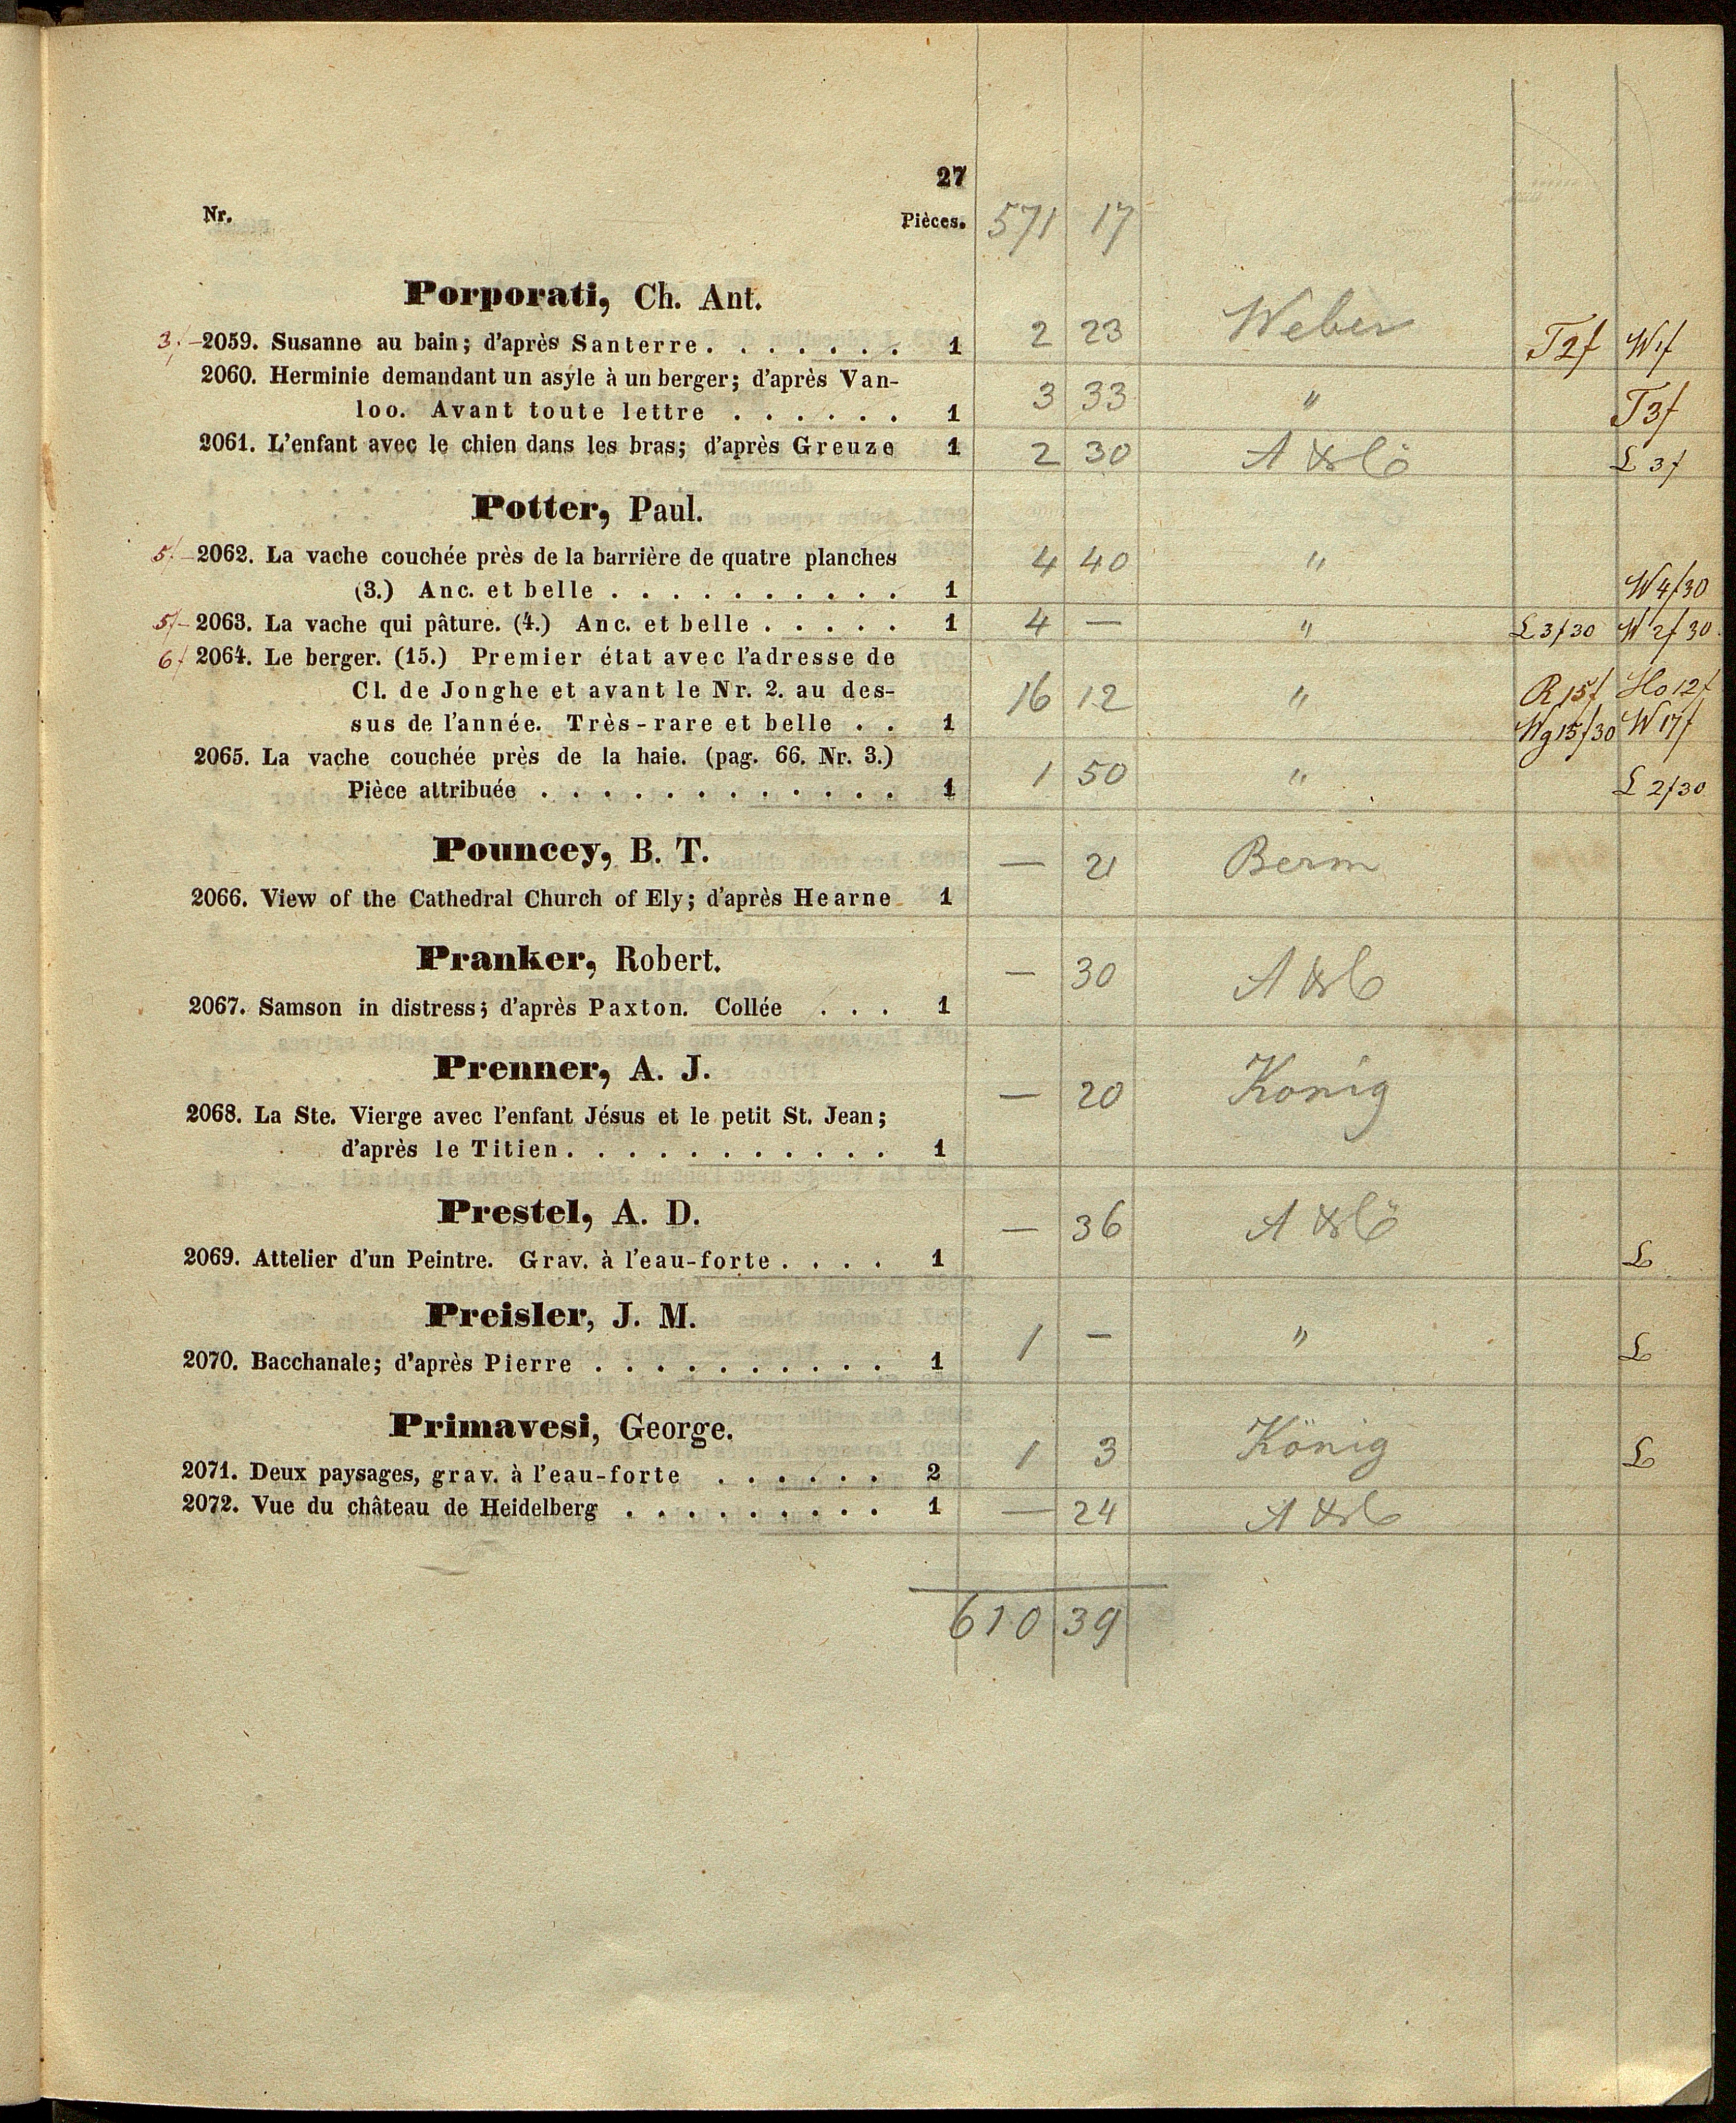 27
Nr. Pièces. 571 17
Porporati, Ch. Ant.
3. – 2059. Susanne au bain; d'après Santerre. . . . . . . 1 2 23 Weber T 2f W 1f
2060. Herminie demandant un asyle à un berger; d'après Van-
loo. Avant toute lettre . . . . . . 1 3 33 " T 3f
2061. L'enfant avec le chien dans les bras; d'après Greuze 1 2 30 L 3f
Potter, Paul.
5. – 2062. La vache couchée près de la barrière de quatre planches 4 40 "
(3.) Anc. et belle . . . . . . . . . . 1 W 4f30
5f – 2063. La vache qui pâture. (4.) Anc. et belle . . . . . 1 4 — " L 3f30 W 2f30
6f 2064. Le berger. (15.) Premier état avec l'adresse de
Cl. de Jonghe et avant le Nr. 2. au des- 16 12 " R 15f Ho 12f
sus de l'année. Très-rare et belle . . 1 Wg 15f30 W 17f
2065. La vache couchée près de la haie. (pag. 66. Nr. 3.) 1 50 "
Pièce attribuée . . . . . . . . . . . . 1 L 2f30
Pouncey, B. T. — 21 Berm
2066. View of the Cathedral Church of Ely; d'après Hearne 1
Pranker, Robert. — 30
2067. Samson in distress; d'après Paxton. Collée . . . 1
Prenner, A. J. — 20 Konig
2068. La Ste. Vierge avec l'enfant Jésus et le petit St. Jean;
d'après le Titien. . . . . . . . . . . 1
Prestel, A. D. — 36
2069. Attelier d'un Peintre. Grav. à l'eau-forte . . . . 1 L
Preisler, J. M. 1 – "
2070. Bacchanale; d'après Pierre . . . . . . . . . . 1 L
Primavesi, George. 1 3 König L
2071. Deux paysages, grav. à l'eau-forte . . . . . . 2
2072. Vue du château de Heidelberg . . . . . . . . . 1 — 24
610 39